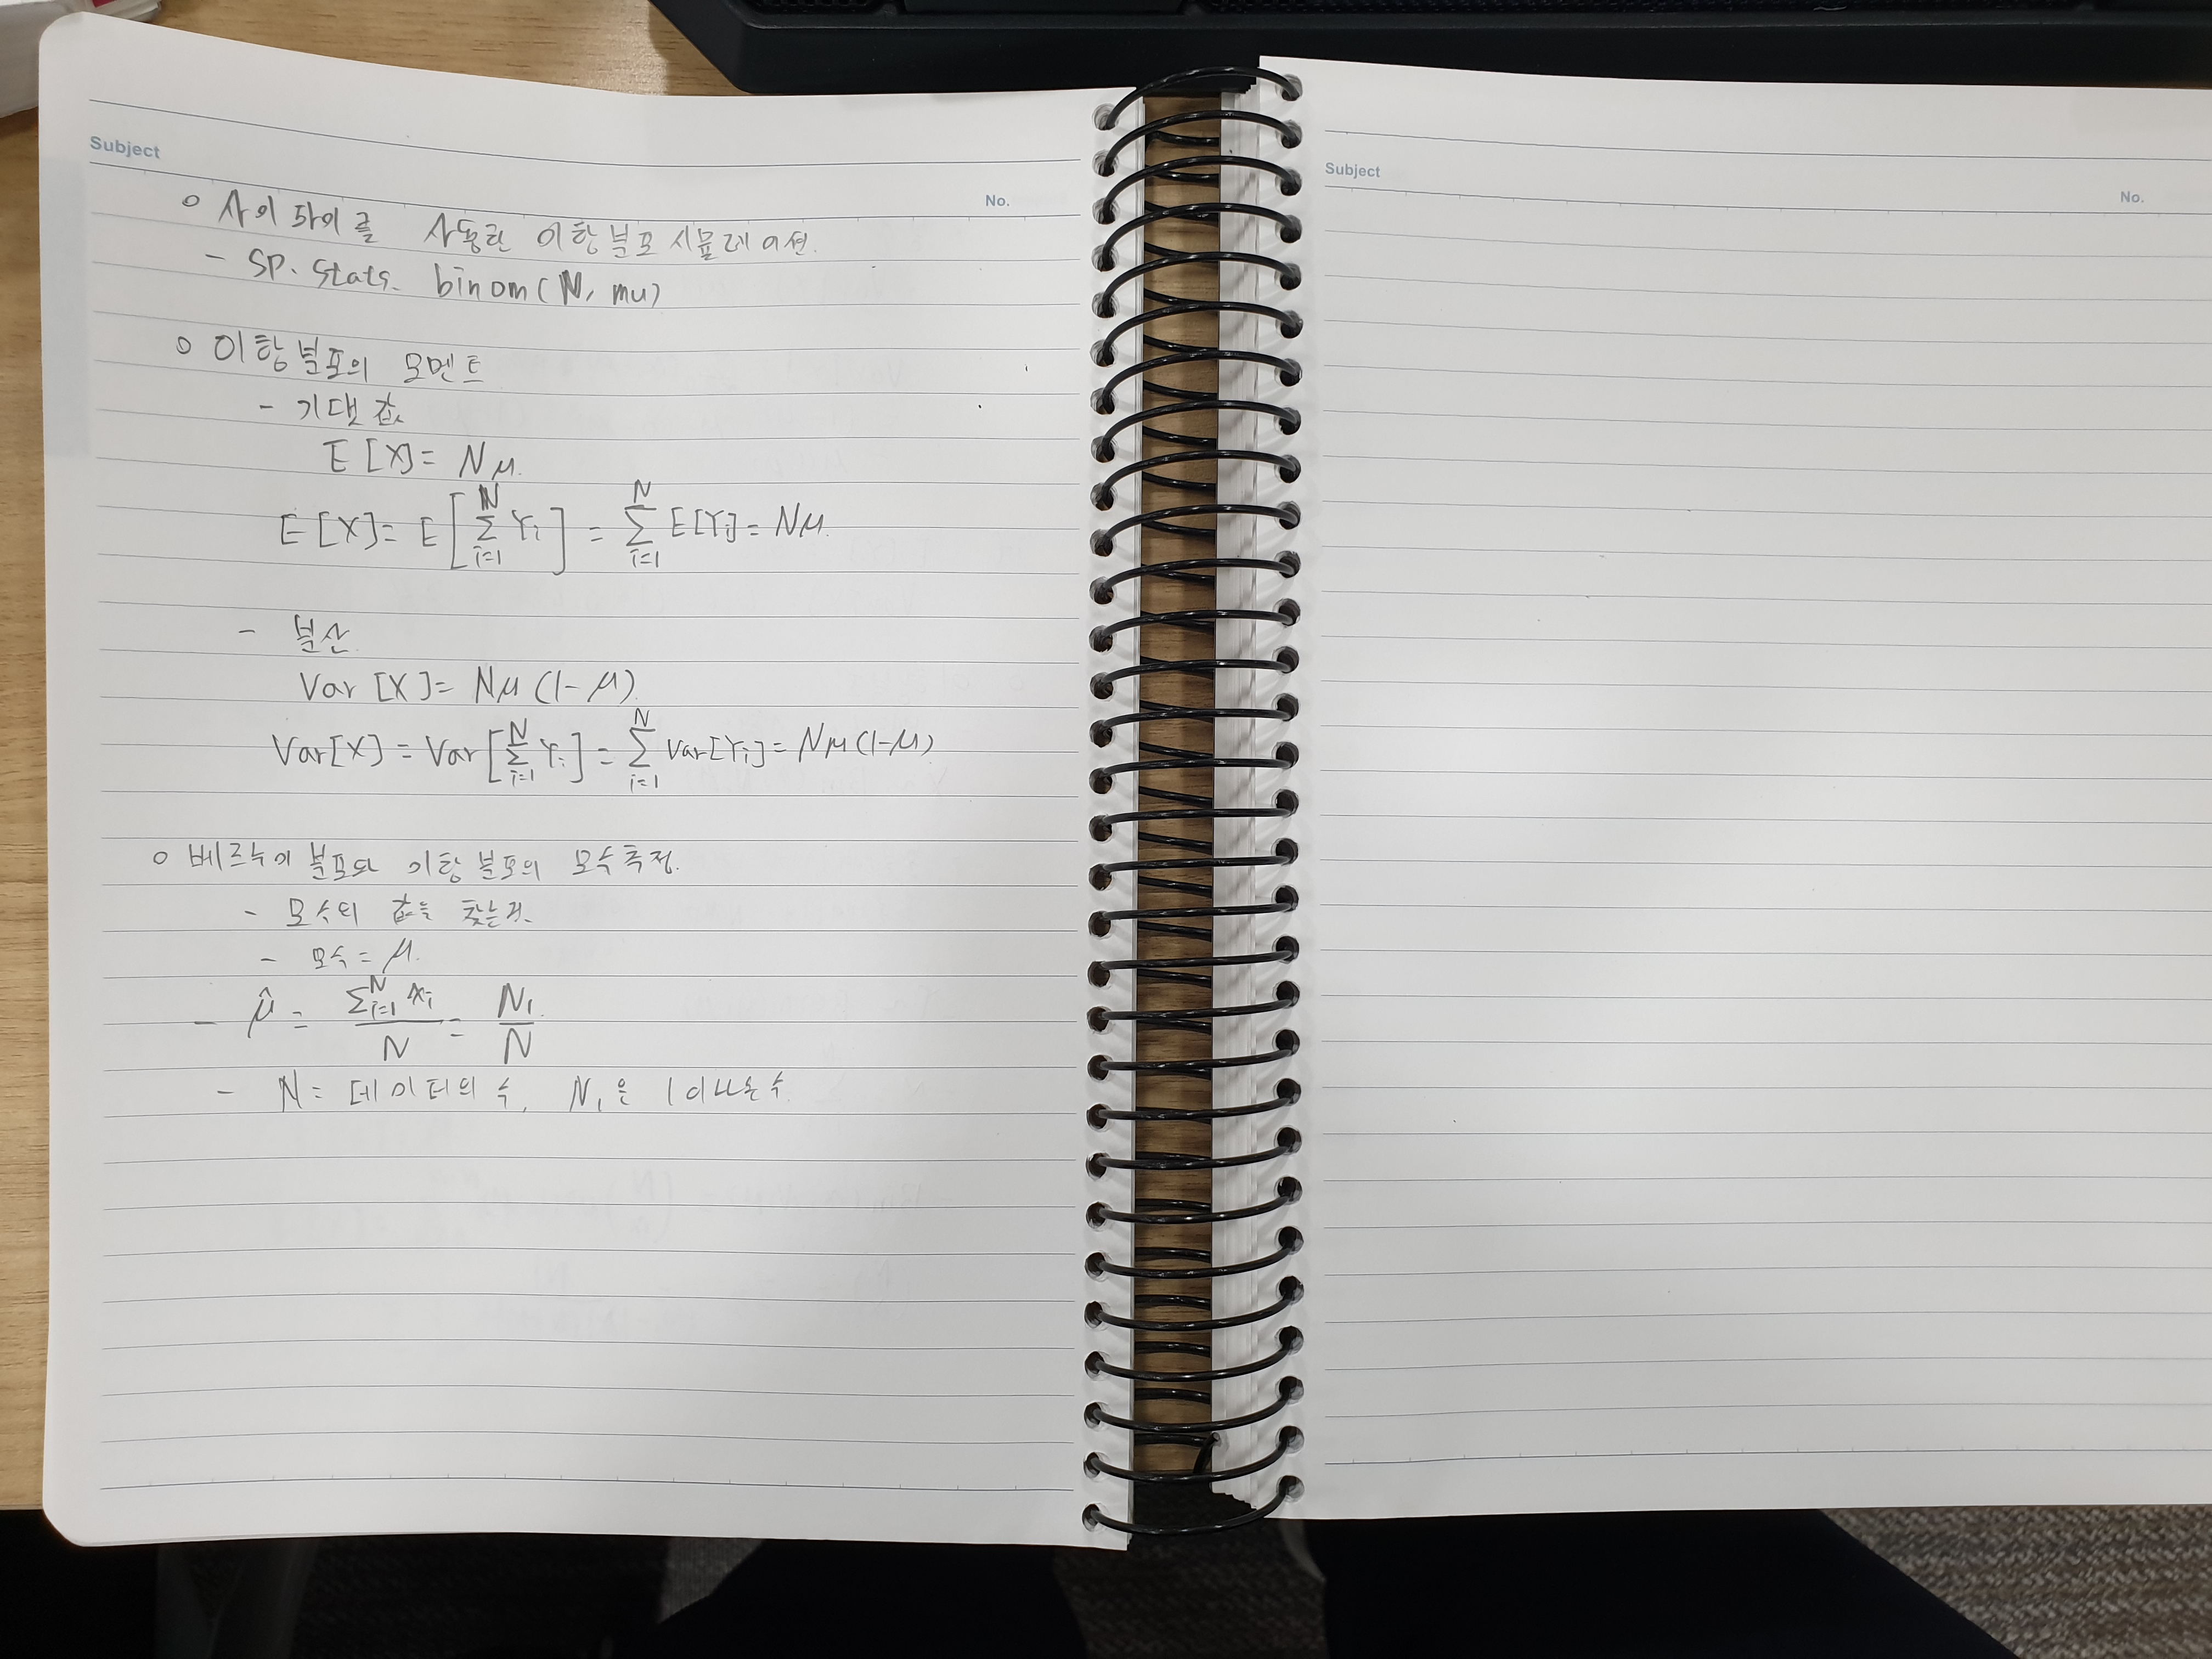 Subject
No.
○ 사이파이를 사용한 이항분포 시뮬레이션.
- SP. stats. binom(N, mu)
○ 이항분포의 모멘트
- 기댓값
E[X] = Nμ.
E[X] = E[∑_{i=1}^{N} Y_i] = ∑_{i=1}^{N} E[Y_i] = Nμ.
- 분산
Var[X] = Nμ(1-μ)
Var[X] = Var[∑_{i=1}^{N} Y_i] = ∑_{i=1}^{N} Var[Y_i] = Nμ(1-μ)
○ 베르누이 분포와 이항분포의 모수추정.
- 모수의 값을 찾는것.
- 모수 = μ.
- μ̂ = ∑_{i=1}^{N} x_i / N = N_1 / N
- N = 데이터의 수, N_1은 1이 나온 수.
Subject
No.